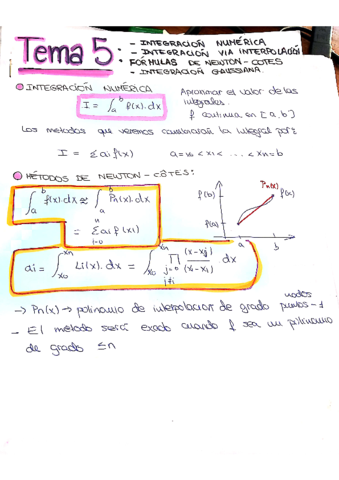 Tema 5:
- INTEGRACIÓN NUMÉRICA
- INTEGRACIÓN VIA INTERPOLACIÓN
FÓRMULAS DE NEWTON-COTES
- INTEGRACIÓN GAUSSIANA.
INTEGRACIÓN NUMÉRICA
I = ∫_a^b f(x).dx
Aproximar el valor de las
integrales.
f continua en [a,b]
Los métodos que veremos cambiarán la integral por:
I = Σ ai f(x) a = x0 < x1 < ... < xn = b
MÉTODOS DE NEWTON-CÔTES:
∫_a^b f(x).dx ≈ ∫_a^b Pn(x).dx
= Σ_{i=0}^n ai f(xi)
Pn(x)
f(b)
f(x)
f(a)
a b
ai = ∫_{x0}^{xn} Li(x).dx = ∫_{x0}^{xn} ∏_{j=0 j≠i} (x-xj)/(xi-xj) dx
nodos
→ Pn(x) → polinomio de interpolación de grado puntos - 1
- El método será exacto cuando f sea un polinomio
de grado ≤n